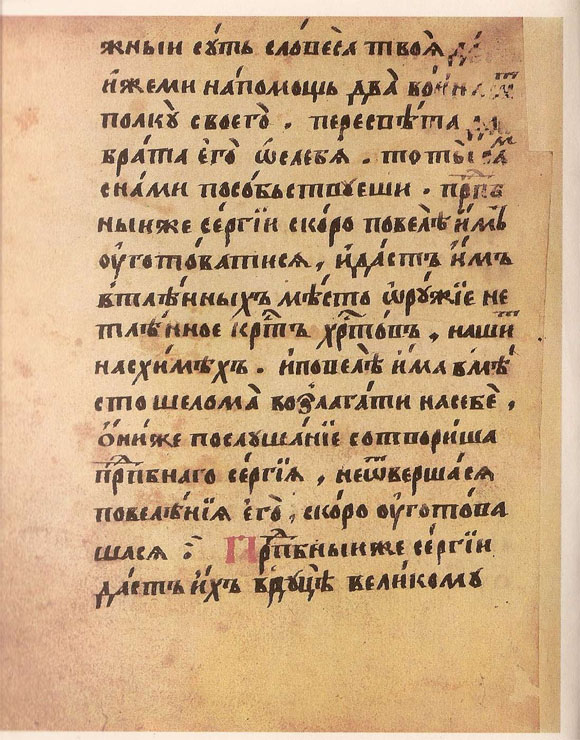 жныи сꙋть словеса̀ твоѧ̀
и҆́жеми напо́мощь два̀ во́ина
полкꙋ̀ своегѡ̀ . пересвѣ́та
бра́та е҆гѡ̀ ѡ҆слебѧ̀ . тоты̀
сна́ми посо́бьствꙋеши . прⷣпб
ныиже се́ргїи ско́ро повелѣ̀ и҆̀мъ
ᲂу҆гото́ватисѧ , и҆да́стъ и҆̀мъ
втлѣ́нныхъ мѣ́сто ѡ҆рꙋ́жїе не
тлѣ́нное крⷭ҇тъ хрⷭ҇товъ , наши́тъ
насхи́мѣхъ . и҆повелѣ̀ и҆́ма вмѣ́
сто шелома̀ возлага́ти насебѐ ,
ѻ҆ни́же послꙋша́нїе сотвори́ша
прⷣпбнаго се́ргїѧ , неѿверша́сѧ
повелѣ́нїѧ е҆гѡ̀ , ско́ро ᲂу҆гото́ва
шасѧ ⁘ Прⷣпбныиже се́ргїи
да́стъ и҆́хъ врꙋ́цѣ вели́комꙋ